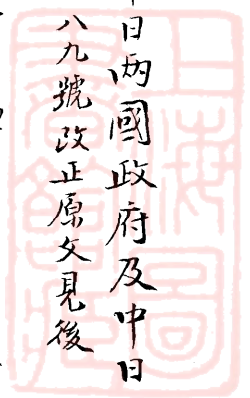 日两國政府及中日
八九號改正原文見後